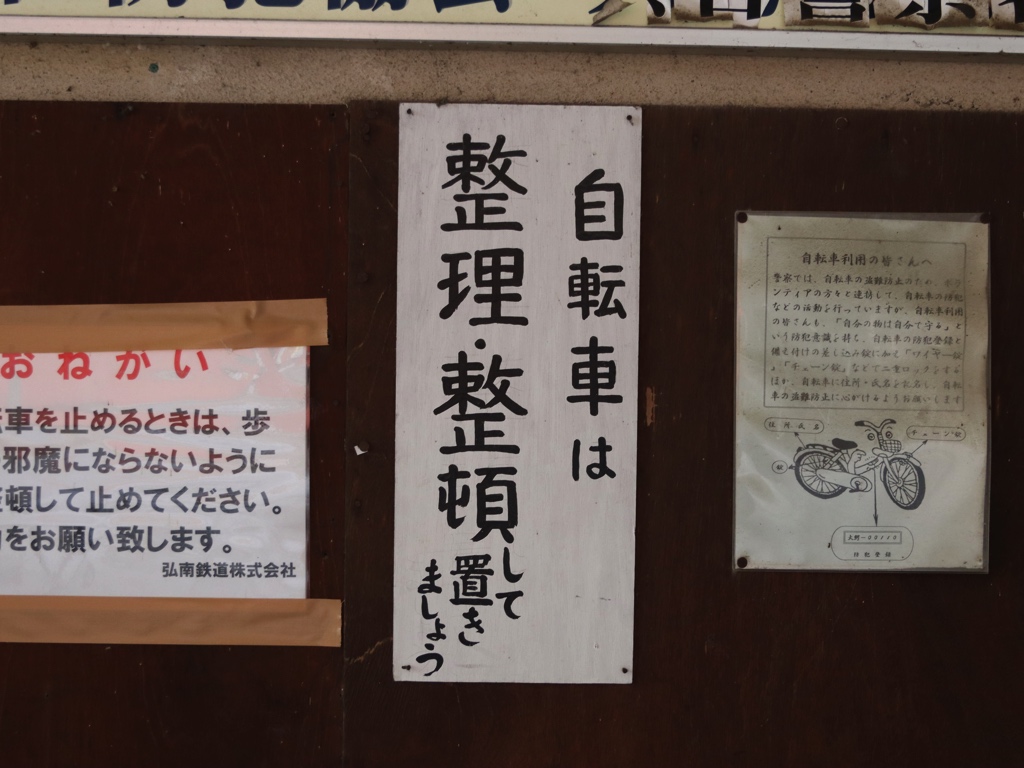 防犯協会
おねがい
車を止めるときは、歩
邪魔にならないように
頓して止めてください。
をお願い致します。
弘南鉄道株式会社
自転車は
整理・整頓して置きましょう
自転車利用の皆さんへ
警察では、自転車の盗難防止のため、ボラ
ンティアの方々と連携して、自転車の防犯
などの活動を行っていますが、自転車利用
の皆さんも、「自分の物は自分で守る」と
いう防犯意識を持ち、自転車の防犯登録と
備え付けの差し込み錠に加え「ワイヤー錠
」、「チェーン錠」などで二重ロックをする
ほか、自転車に住所・氏名を記名し、自転
車の盗難防止に心がけるようお願いします
住所氏名
チェーン錠
錠
防犯登録